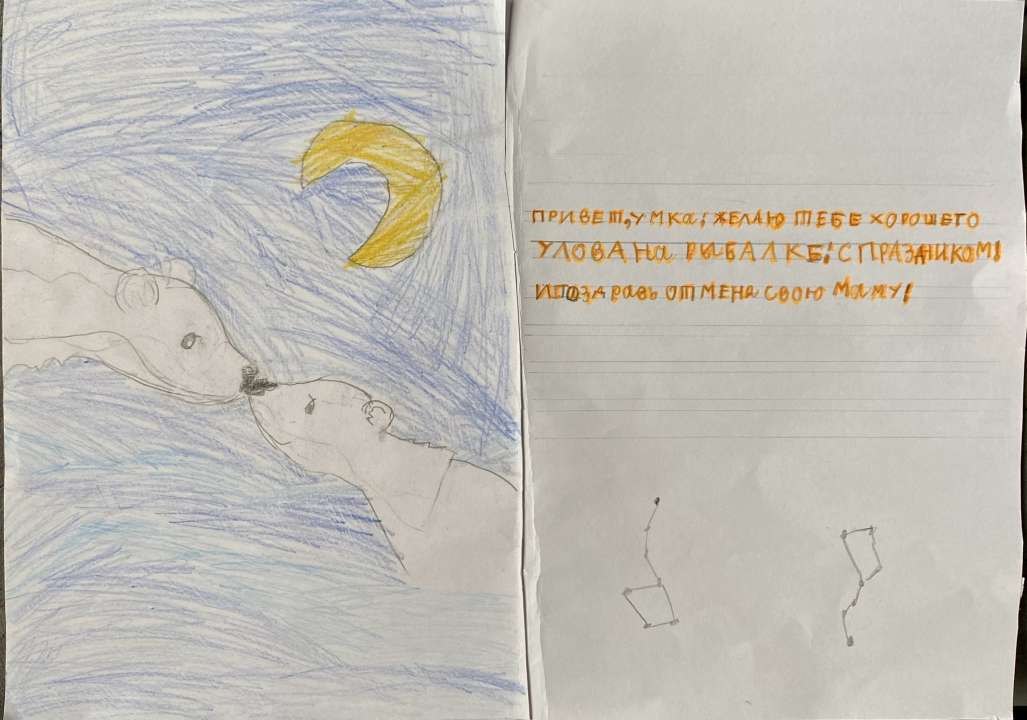 ПРИВЕТ, УМКА! ЖЕЛАЮ ТЕБЕ ХОРОШЕГО
УЛОВА НА РЫБАЛКЕ! С ПРАЗДНИКОМ!
И ПОЗДРАВЬ ОТ МЕНЯ СВОЮ МАМУ!